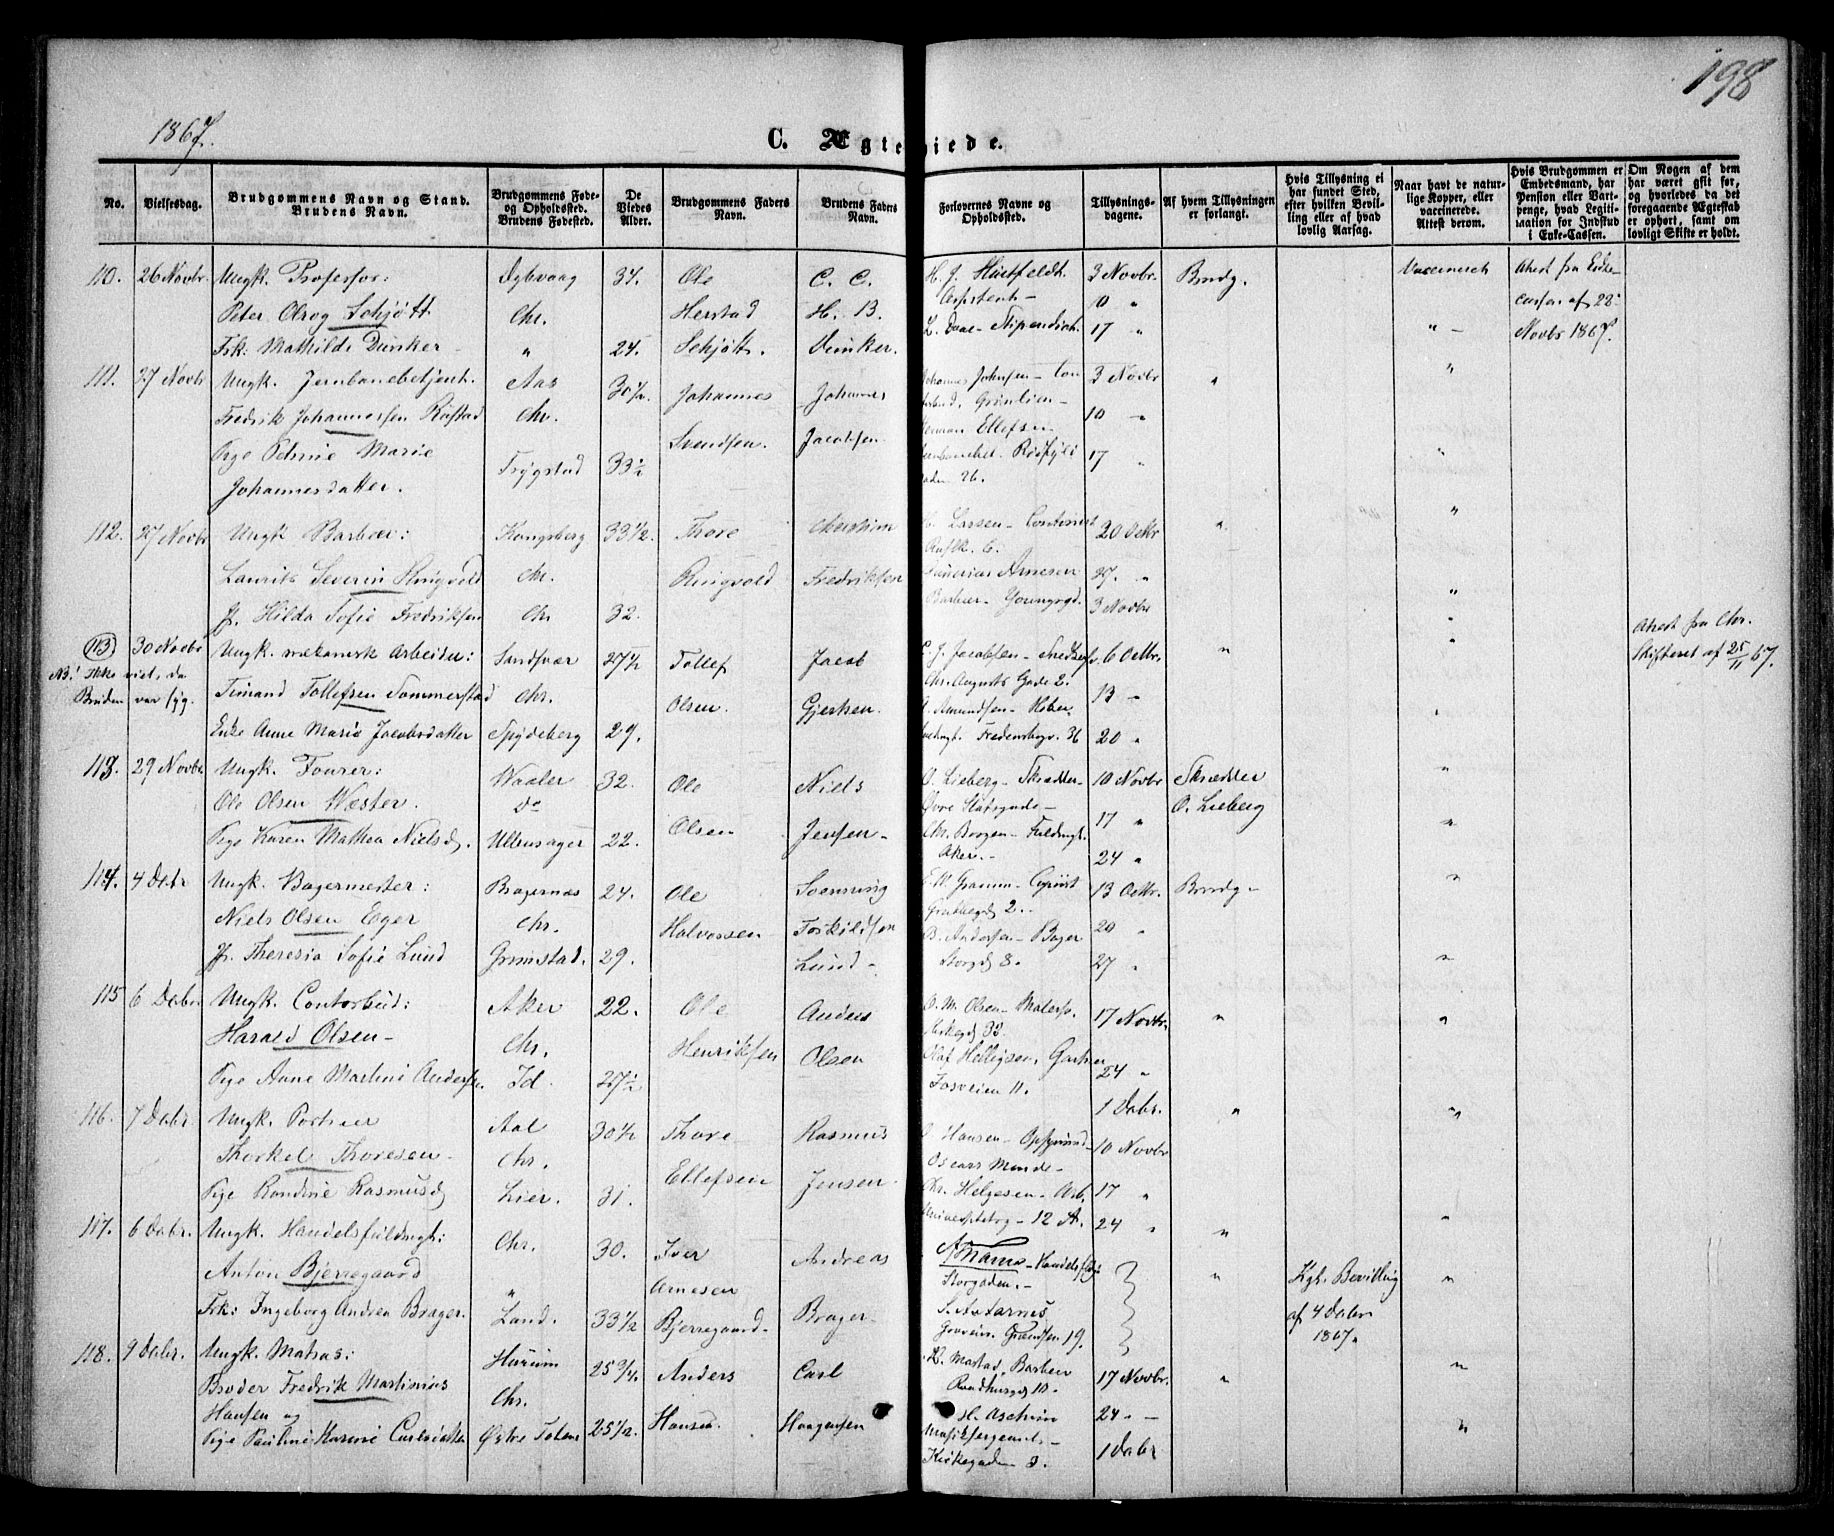 198
1867.
C. Ægte
iede.
No.
Vielsesdag.
Brudgommens Navn og Stand.
Brudens Navn.
Brudgommens Føde-
og Opholdssted.
Brudens Fødested.
De
Viedes
Alder.
Brudgommens Faders
Navn.
Brudens Faders
Navn.
Forlovernes Navne og
Opholdssted.
Tillysnings-
dagene.
Af hvem Tillysningen
er forlangt.
Hvis Tillysning ei
har fundet Sted,
efter hvilken Bevil-
ling eller af hvad
lovlig Aarsag.
Naar havt de natur-
lige Kopper, eller
vaccinerede.
Attest derom.
Hvis Brudgommen er
Embedsmand, har
Pension eller Vart-
penge, hvad Legiti-
mation for Indskud
i Enke-Cassen.
Om Nogen af dem
har været gift før,
og hvorledes da det
foregaaende Ægteskab
er ophørt, samt om
lovligt Skifte er holdt.
110. 26 Novbr. Ungk. Professor: Dybvaag 34. Ole C. C. H. J. Huitfeldt 3 Novbr. Brudg. Vaccineret Attest fra Enke-
Peter Olrog Schjøtt Chr. Herstad H. B. 10 " cassen af 28
Frk: Mathilde Dunker " 24. Schjøtt. Dunker. L. Daae - Stipendiat 17 " " Novbr 1867.
111. 27 Novbr Ungk. Jernbanebetjent. Aas 30½. Johannes Johannes Johannes Johnsen 3 Novbr " "
Fredrik Johannessen Røstad Chr. Svendsen. Jacobsen Grønlien 10 "
Pige Petrine Marie Trygstad 33½ Herman Ellefsen 17 " "
Johannesdatter. 26.
112. 27 Novbr Ungk Barbeer: Kongsberg 33½. Thore Christian Lassen - Contorist 20 Octbr " "
Laurits Severin Ringvold Chr. Ringvold Fredriksen Arnesen 27. "
Jf. Hilda Sofie Fredriksen Chr 32. Barbeer 3 Novbr "
(113) 30 Novbr Ungk. mekanisk Arbeider: Sandsvær 27½ Tollef Jacob J. Jacobsen 6 Octbr. " " Attest fra Chr.
NB! Ikke viet, da Timand Tollefsen Sommerstad Chr. Olsen. Gjersen. Chr. Augusts Gade 2. 13 " Skifteret af 25/11 67.
Bruden var syg. Enke Anne Marie Jacobsdatter Spydeberg 29. Amundsen 36 20 "
113. 29 Novbr. Ungk. Tourer: Waaler 32. Ole Niels O. Lieberg - Skrædder 10 Novbr Skrædder "
Ole Olsen Wæster. do Olsen Jensen Øvre Slotsgade 17 " O. Lieberg
Pige Karen Mathea Nielsd. Ullensager 22. Chr. Borgen - Fuldmgt. 24 " "
Aker.
114. 4 Dcbr Ungk. Bagermester: Bragernæs 24. Ole Svenning 13 Octbr. Brudg "
Niels Olsen Eger Chr. Halvorsen Torkildsen 2. 20 "
Jf. Theresia Sofie Lund Grimstad. 29. Lund B. Andersen - Bager 27 " "
Storgd 8.
115 6 Dcbr. Ungk. Contorbud: Aker 22. Ole Anders O. M. Olsen - Malersv. 17 Novbr. " "
Harald Olsen Chr. Henriksen Olsen 24 "
Pige Anne Martine Andersen Id. 27½ 11. 1 Dcbr.
116. 7 Dcbr. Ungk. Portner Aal 30½ Thore Rasmus Hansen 10 Novbr " "
Thorkel Thoresen Chr. Ellefsen Jensen Oscars Minde 17 "
Pige Randine Rasmusd Lier. 31. Chr. Helgesen - Arb. 24 "
12 A.
117. 6 Dcbr. Ungk. Handelsfuldmgt: Chr. 30. Iver Andreas Storgaden. " Kgl. Bevilling "
Anton Bjerregaard " Arnesen af 4 Dcbr
Frk: Ingeborg Andrea Brager. Land. 33½ Bjerregaard. Brager Grændsen 19. 1867.
118. 9 Dcbr. Ungk. Matros: Hurum 25¾. Anders Carl Mastad, Barbeer 17 Novbr. " "
Broder Fredrik Martinius Chr. Raadhusgd 10.
Hansen og Hansen Haagensen H. Aschim 24 "
Pige Pauline Karine Carlsdatter Østre Toten 25½. Kirkegaden 3. 1 Dcbr "